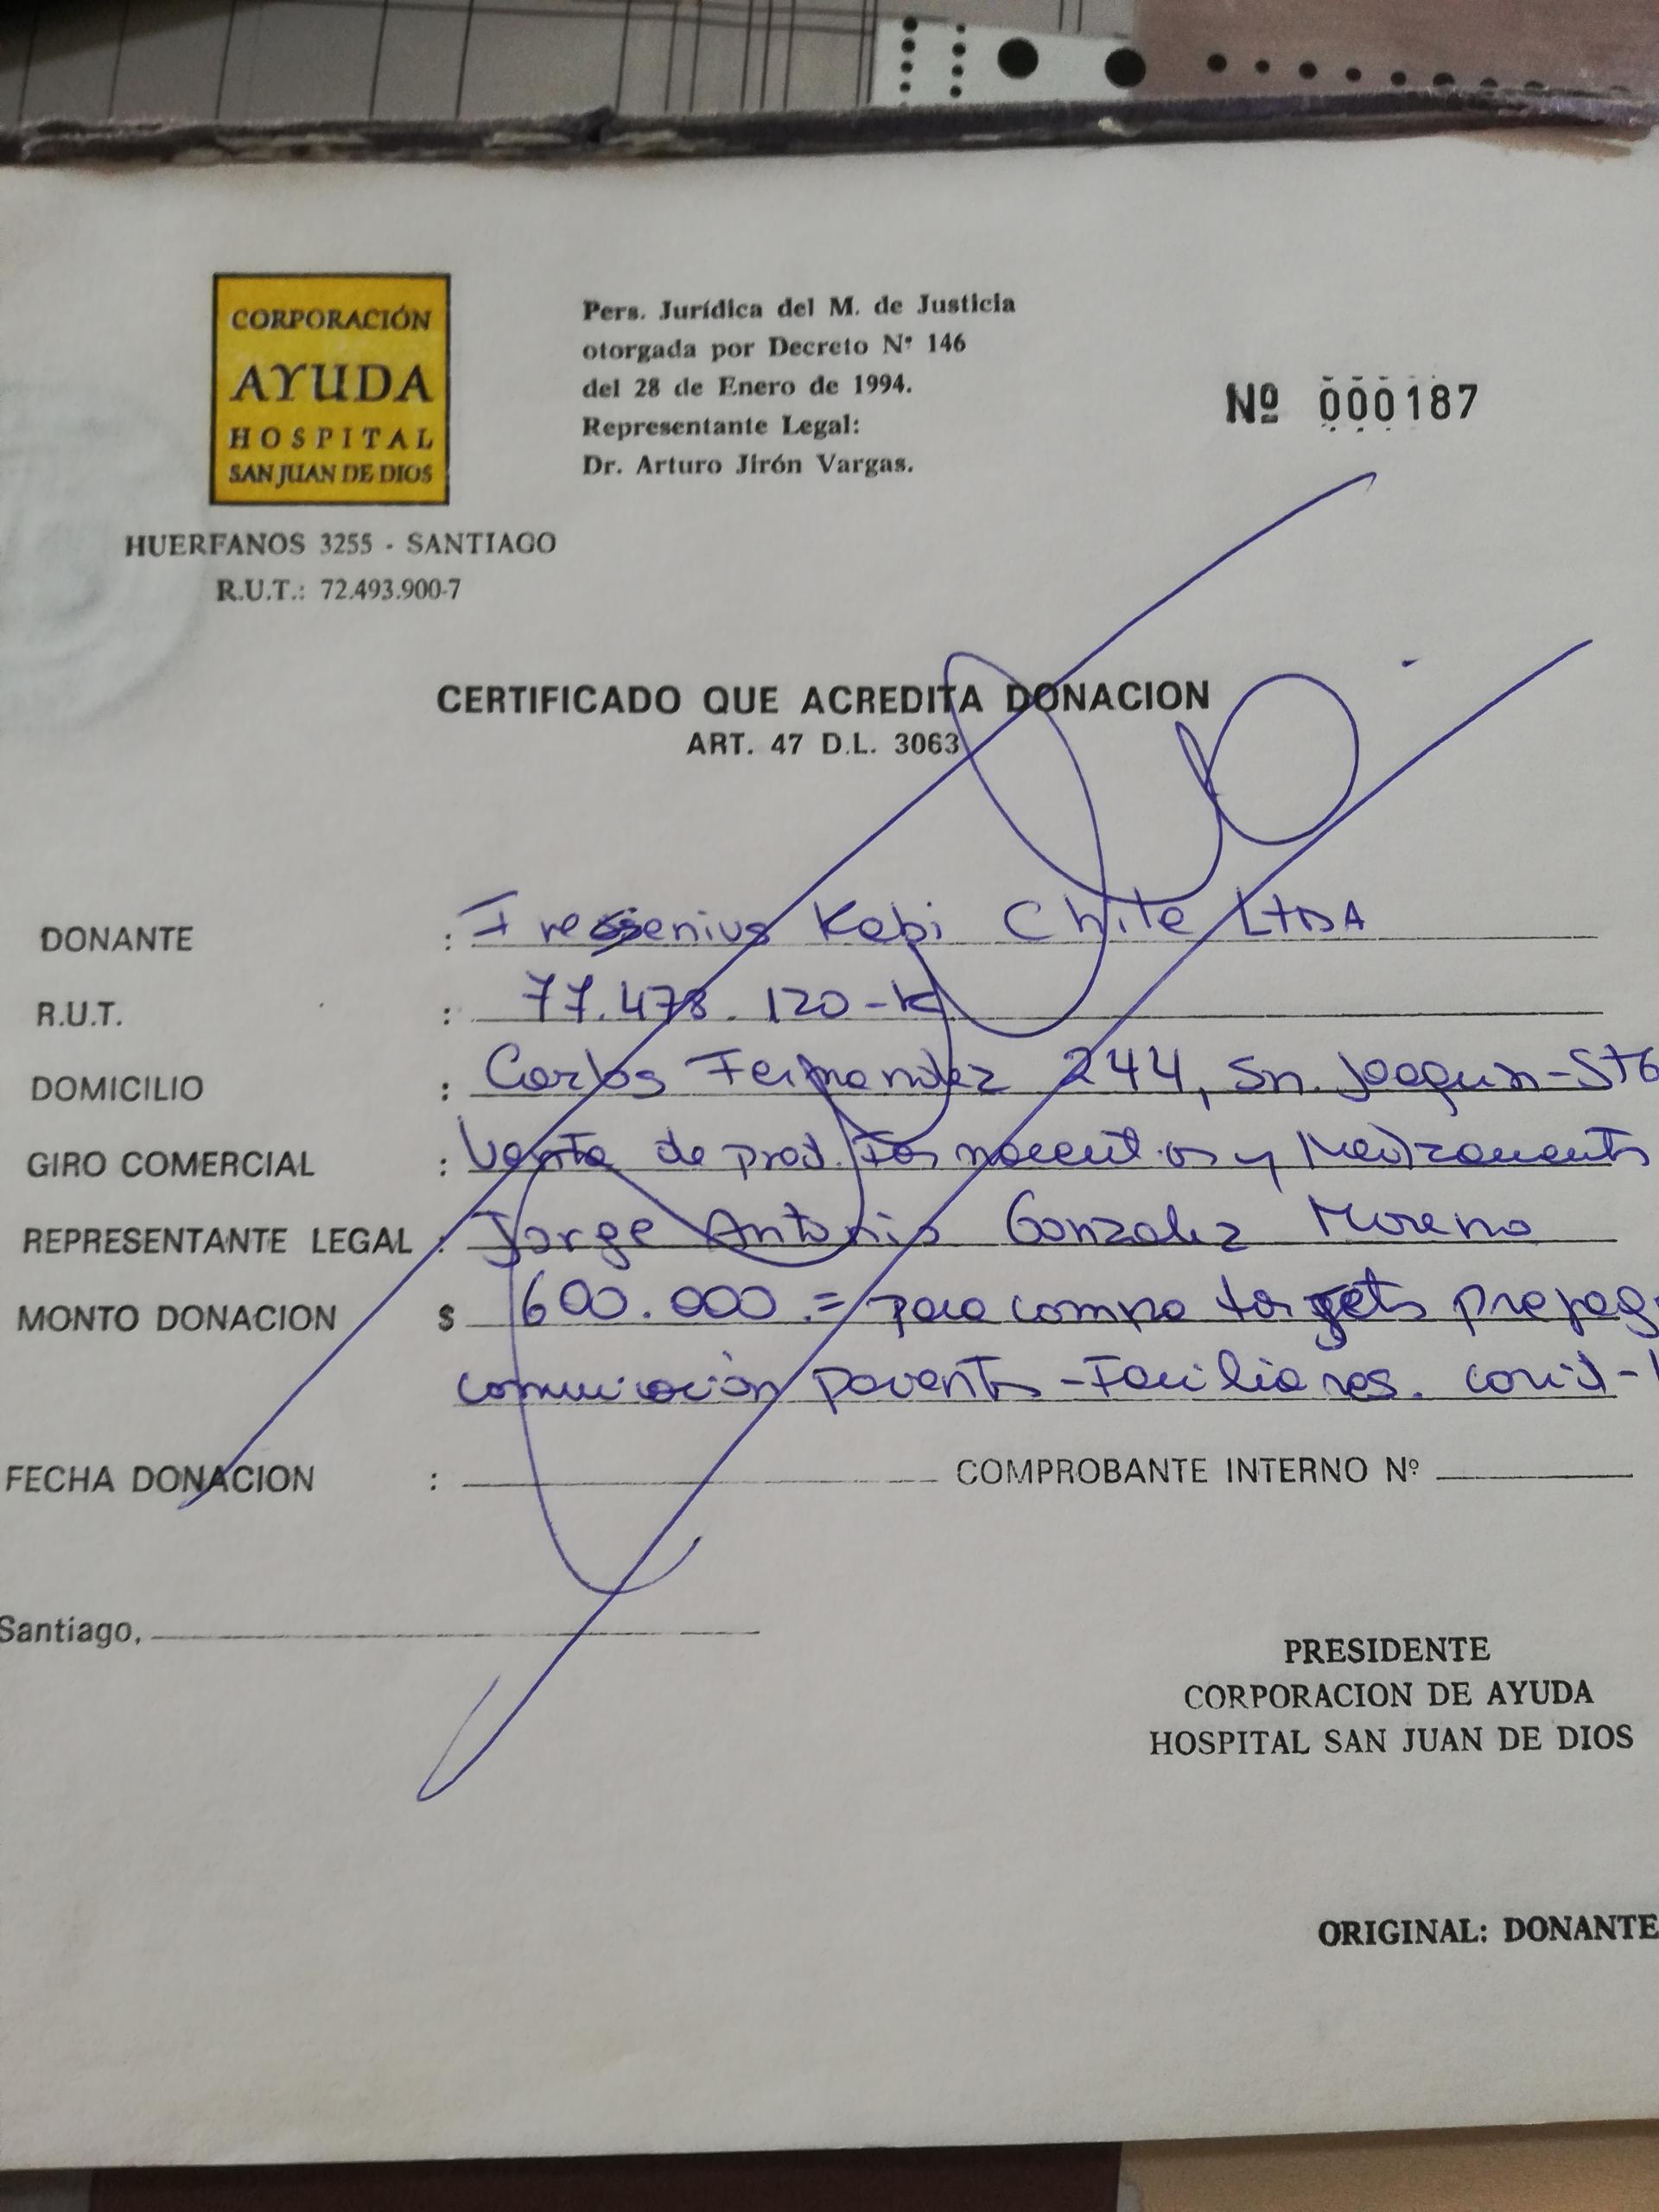 CORPORACIÓN
AYUDA
HOSPITAL
SAN JUAN DE DIOS
HUERFANOS 3255 - SANTIAGO
R.U.T.: 72.493.900-7
Pers. Jurídica del M. de Justicia
otorgada por Decreto Nº 146
del 28 de Enero de 1994.
Representante Legal:
Dr. Arturo Jirón Vargas.
Nº 000187
CERTIFICADO QUE ACREDITA DONACION
ART. 47 D.L. 3063
DONANTE : Fressenius Kabi Chile LTDA
R.U.T. : 77.478.120-K
DOMICILIO : Carlos Fernandez 244, Sn. Joaquin-STG
GIRO COMERCIAL : Venta de prod. Farmaceuticos y Medicamentos
REPRESENTANTE LEGAL : Jorge Antonio Gonzalez Moreno
MONTO DONACION $ 600.000.= para compra targets prepag
comunicación pacientes-Familiares. covid-1
FECHA DONACION : COMPROBANTE INTERNO Nº
Santiago,
PRESIDENTE
CORPORACION DE AYUDA
HOSPITAL SAN JUAN DE DIOS
ORIGINAL: DONANTE